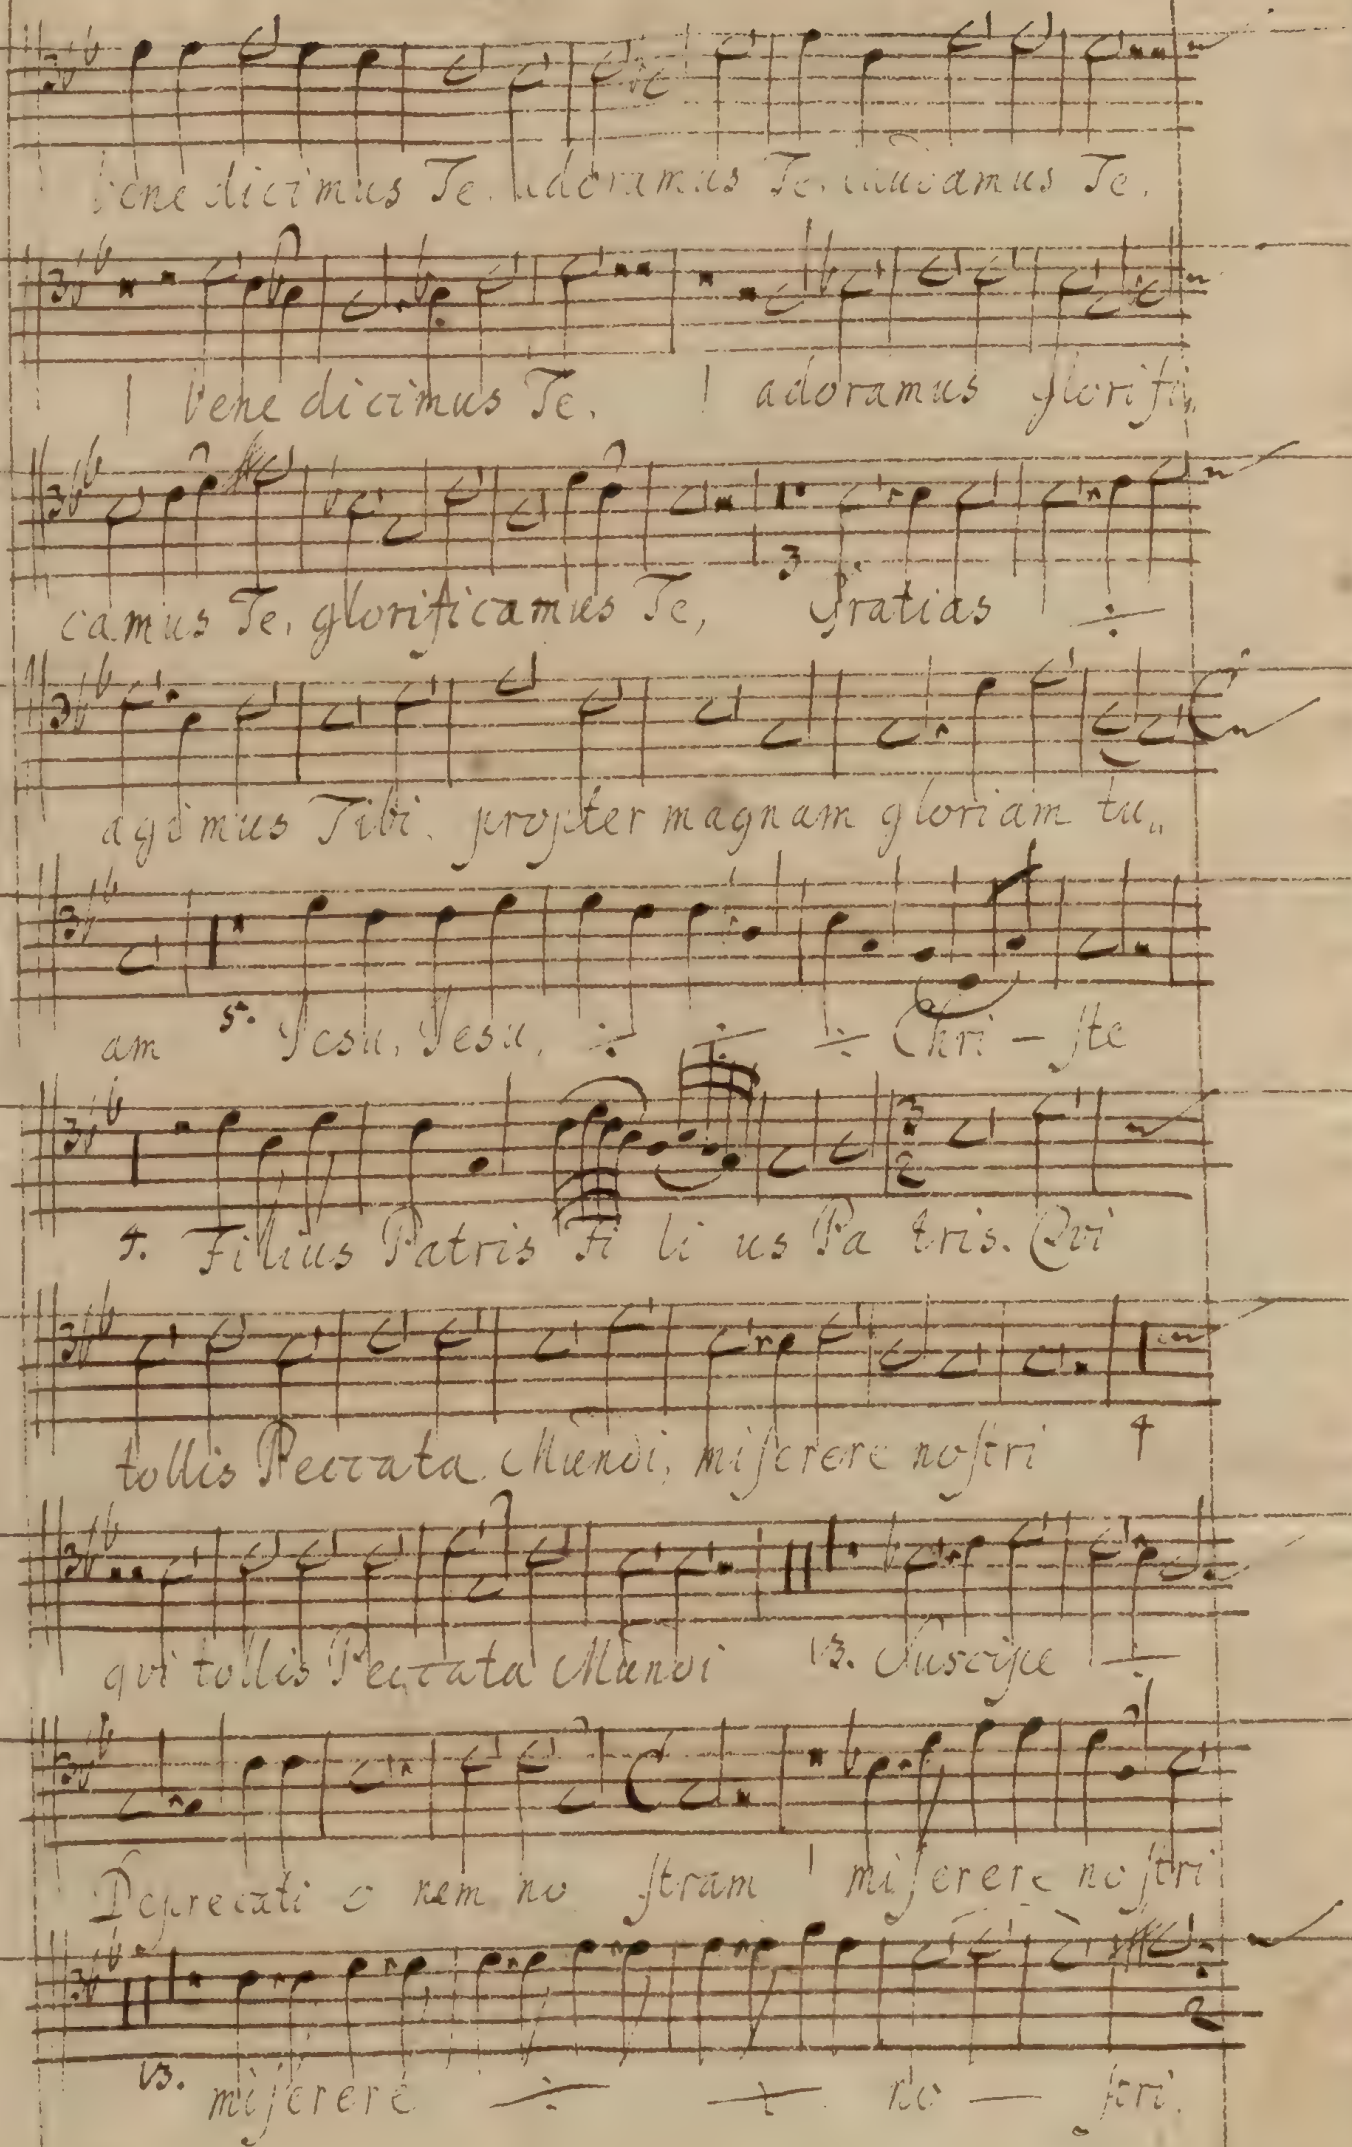 bene dicimus Te. adoramus Te. laudamus Te.
| bene dicimus Te. | adoramus glorifi„
3
camus Te, glorificamus Te, Gratias ÷
agimus Tibi. propter magnam gloriam tu„
5.
am Jesu, Jesu, ÷ ÷ ÷ Chri – ste
3
2
4. Filius Patris Fi li us Pa tris. Qvi
4
tollis Peccata Mundi, miserere nostri
qvi tollis Peccata Mundi 13. Suscipe ÷
Deprecati o nem no stram | miserere nostri
2
13. miserere ÷ ÷ no — stri.